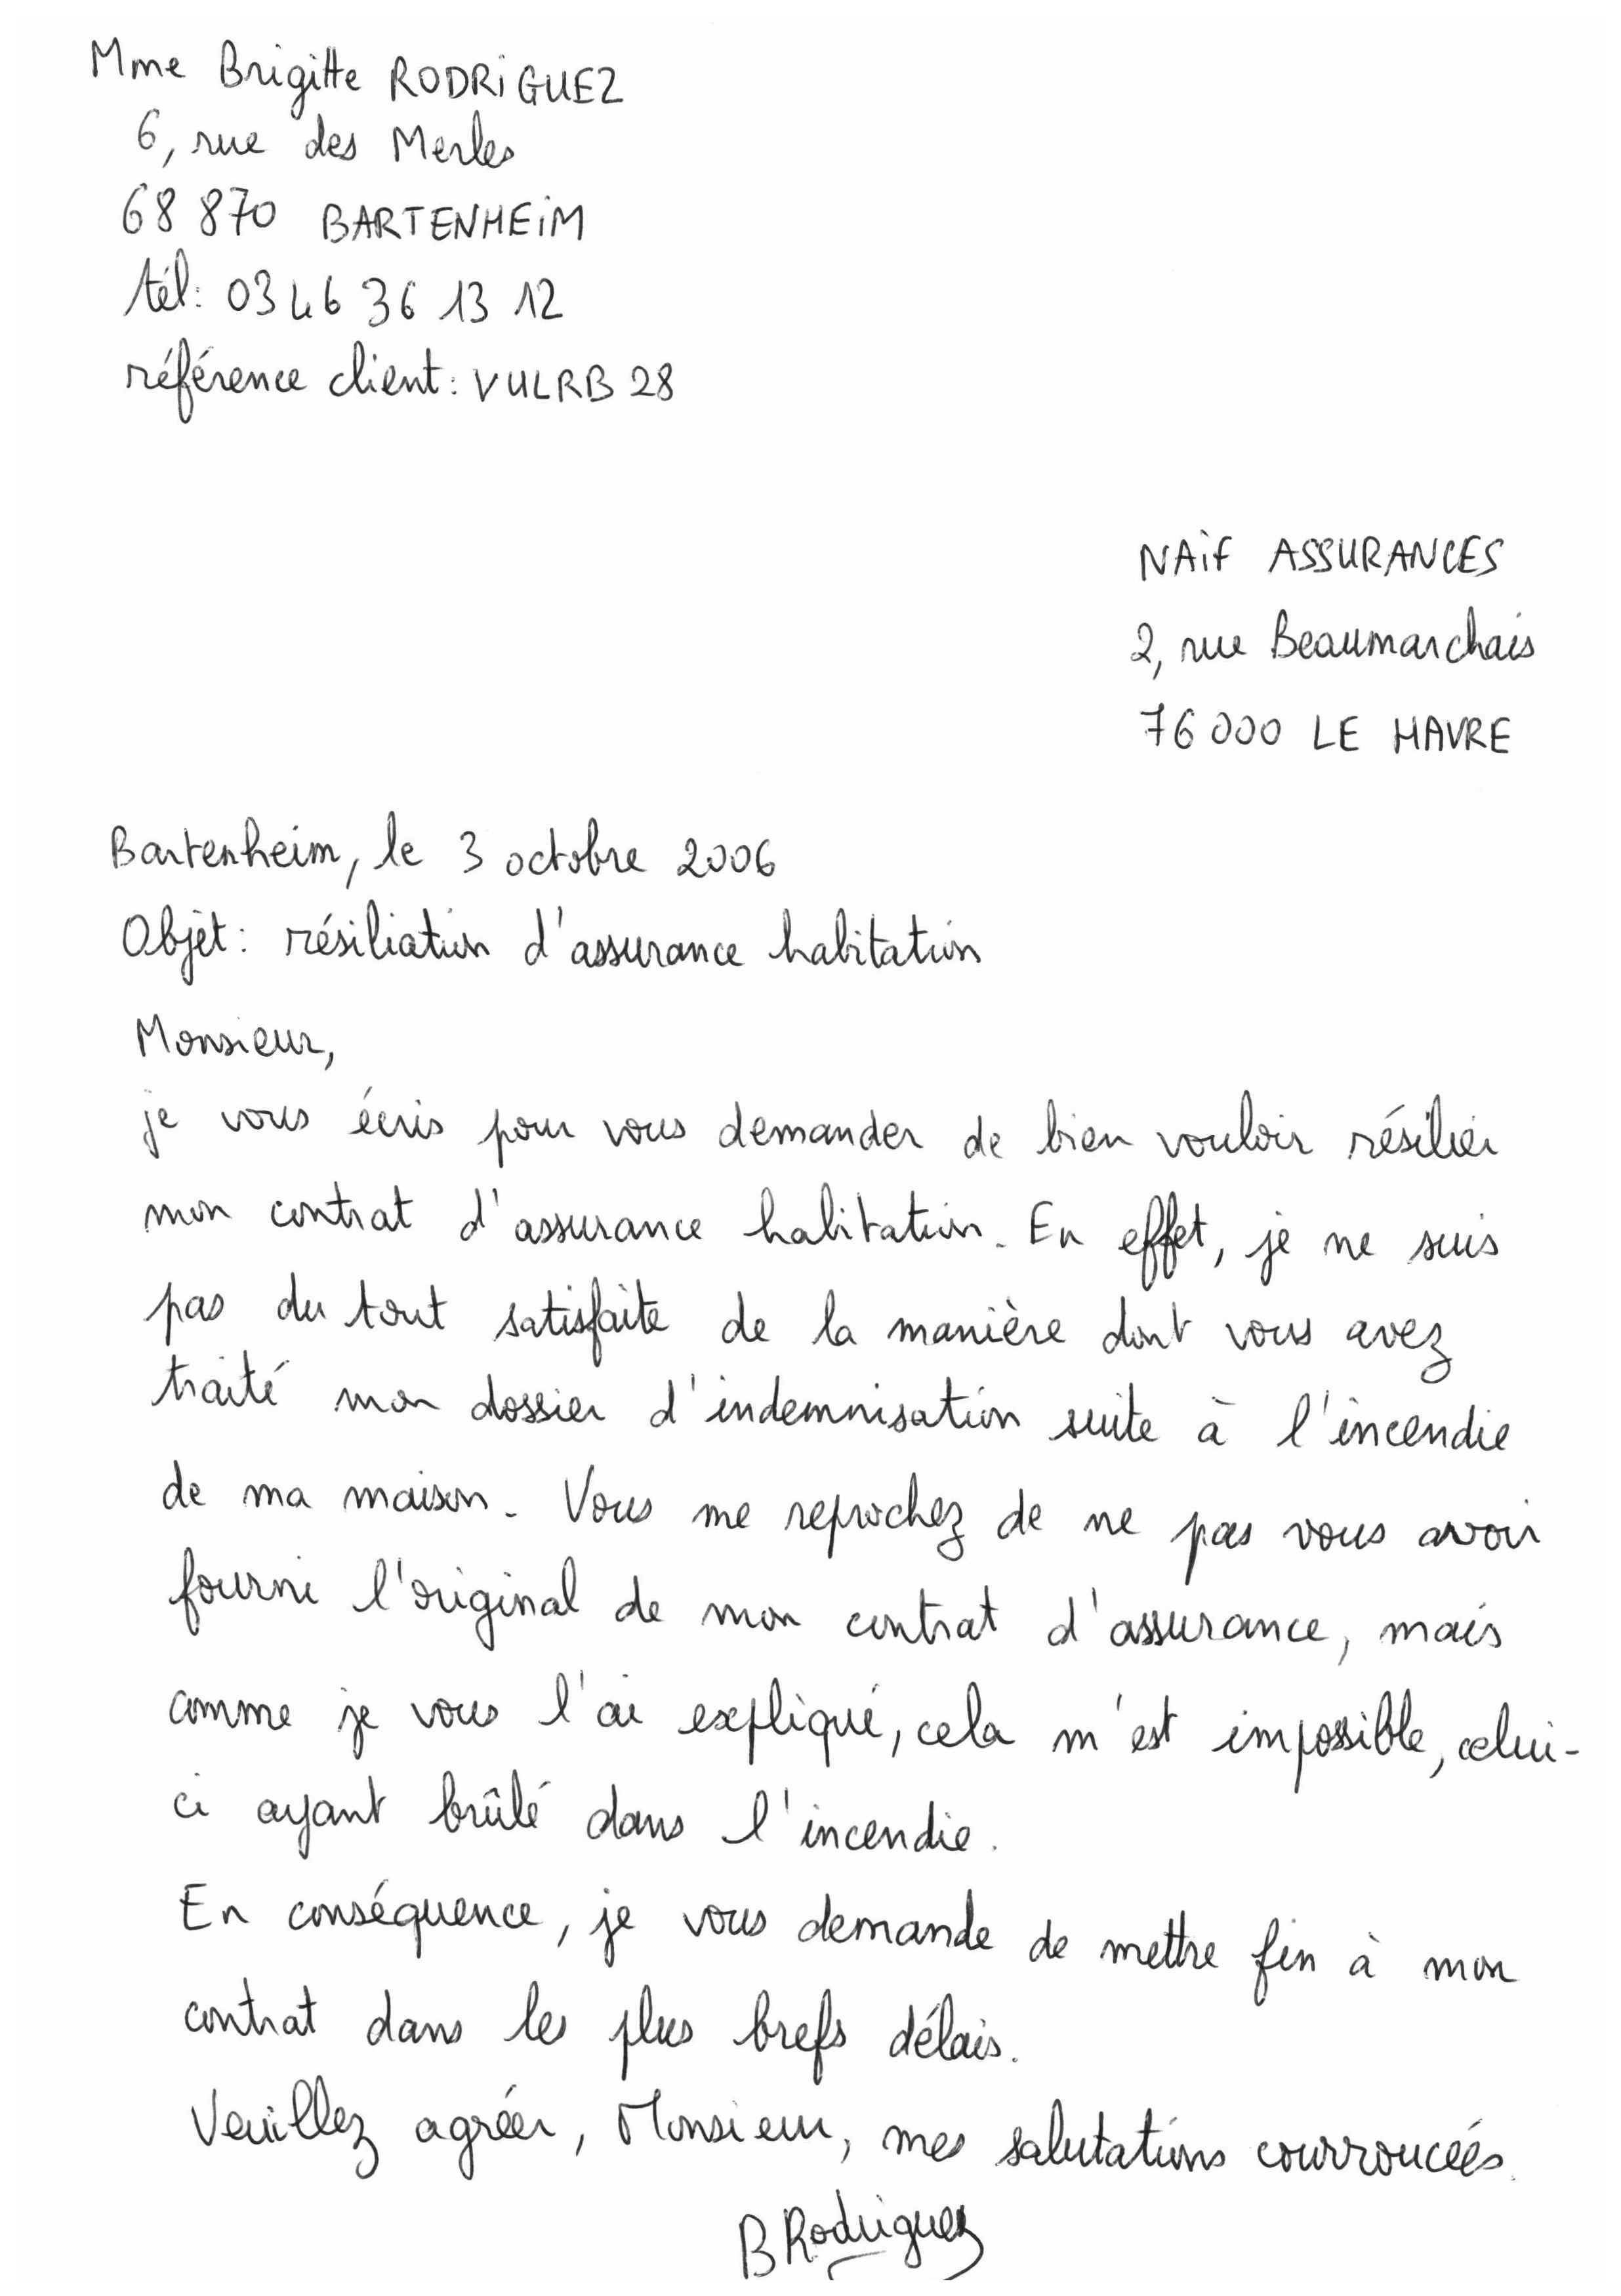 Mme Brigitte RODRIGUEZ
6, rue des Merles
68 870 BARTENHEIM
tél: 03 46 36 13 12
référence client: VULRB 28
NAIF ASSURANCES
2, rue Beaumarchais
76 000 LE HAVRE
Bartenheim, le 3 octobre 2006
Objet: résiliation d'assurance habitation
Monsieur,
je vous écris pour vous demander de bien vouloir résilier
mon contrat d'assurance habitation. En effet, je ne suis
pas du tout satisfaite de la manière dont vous avez
traité mon dossier d'indemnisation suite à l'incendie
de ma maison. Vous me reprochez de ne pas vous avoir
fourni l'original de mon contrat d'assurance, mais
comme je vous l'ai expliqué, cela m'est impossible, celui-
ci ayant brûlé dans l'incendie.
En conséquence, je vous demande de mettre fin à mon
contrat dans les plus brefs délais.
Veuillez agréer, Monsieur, mes salutations courroucées.
B Rodriguez